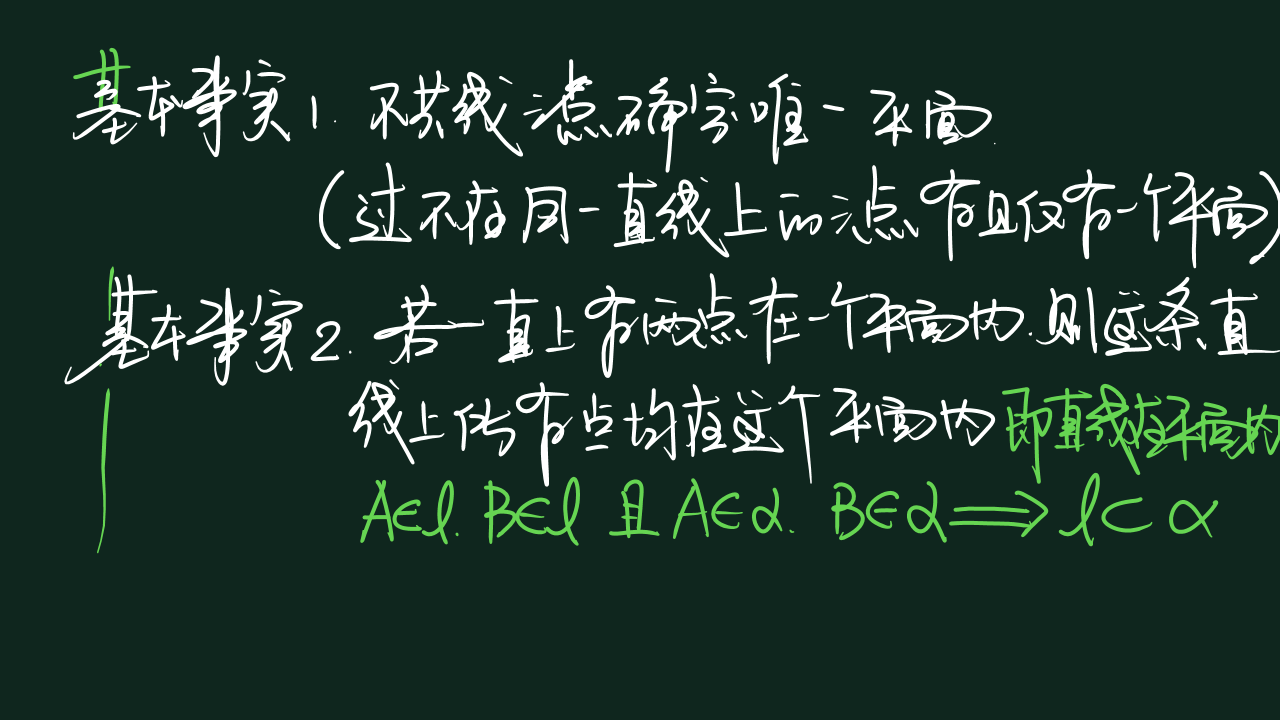 基本事实1. 不共线三点确定唯一平面.
(过不在同一直线上的三点有且仅有一个平面)
基本事实2. 若一直上有两点在一个平面内.则这条直
线上所有点均在这个平面内 即直线在平面内
A∈l. B∈l 且A∈α. B∈α⟹l⊂α